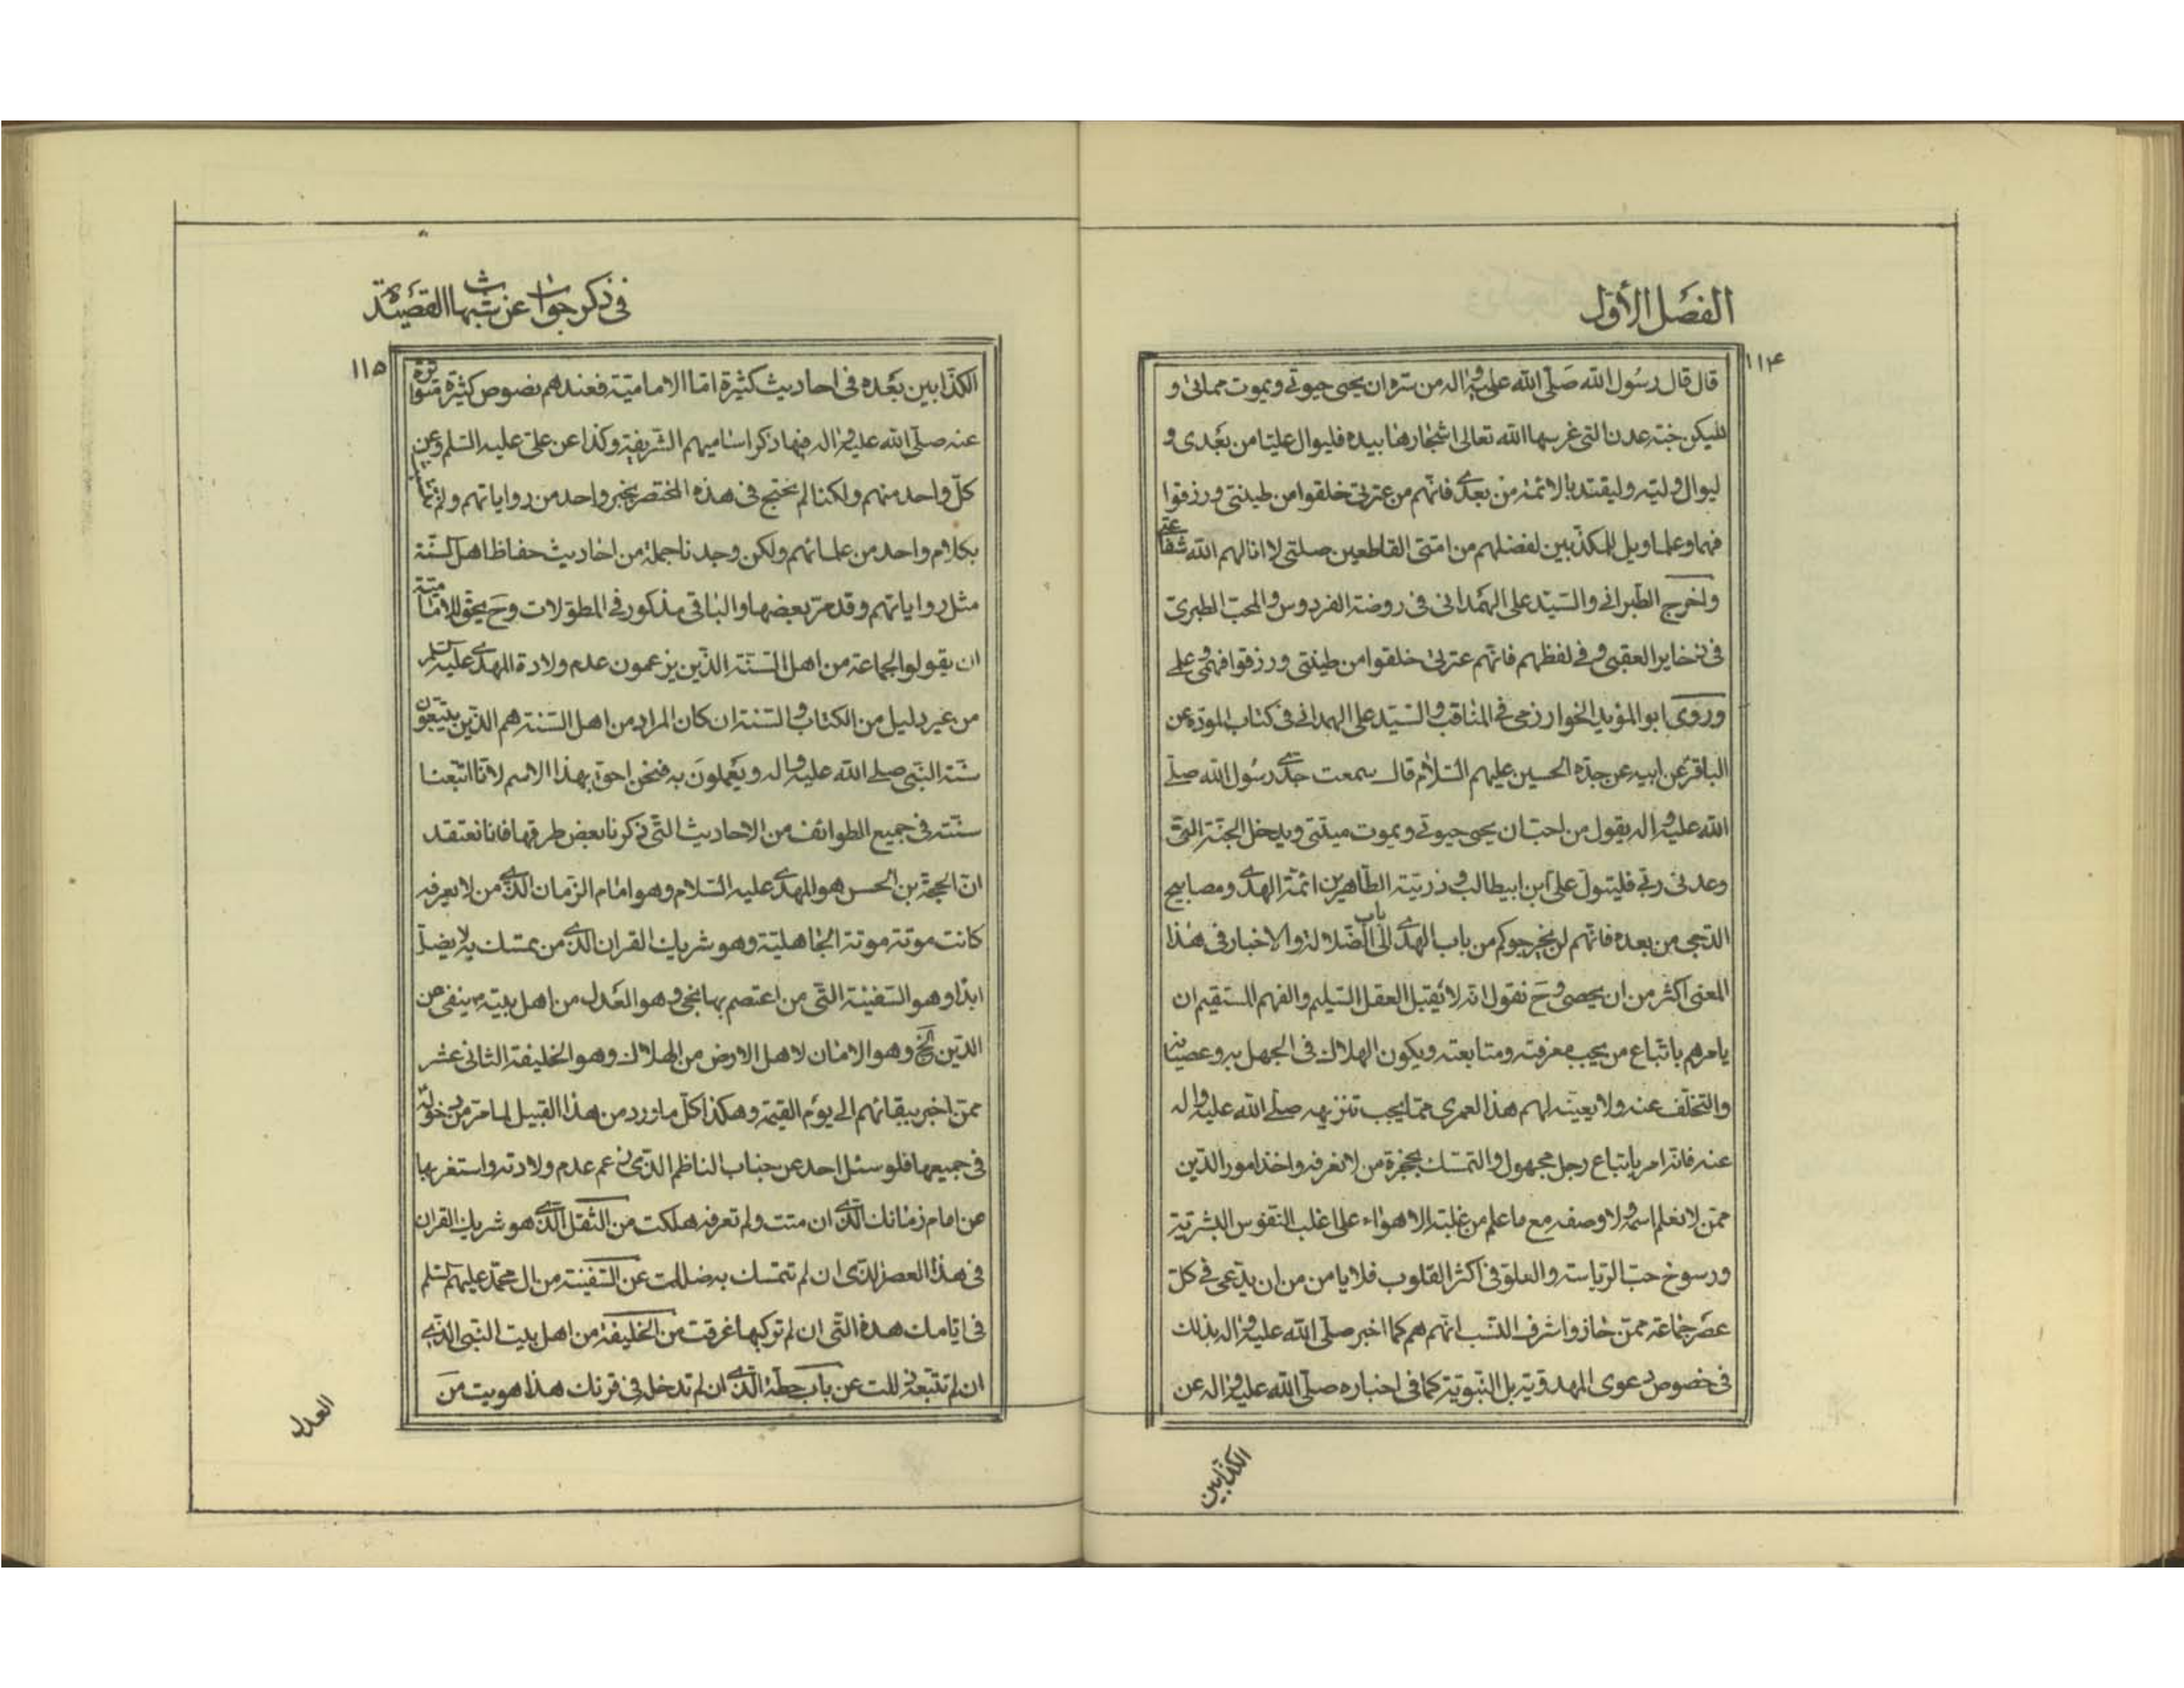 الفصل الأول
١١٤
قال قال رسول الله صلّى الله عليه واله من سره ان يحيى حيوتى ويموت مماتى و
يسكن جنة عدن التى غرسها الله تعالى اشجارها بيده فليوال عليا من بعدى و
ليوال وليه وليقتد بالائمة من بعدى فانهم من عترتى خلقوا من طينتى ورزقوا
فهما وعلما ويل للمكذبين لفضلهم من امتى القاطعين صلتى لا انالهم الله شفاعتى
واخرج الطبرانى والسيد على الهمدانى فى روضة الفردوس والمحب الطبرى
فى ذخاير العقبى وفى لفظهم فانهم عترتى خلقوا من طينتى ورزقوا فهمى وعلمى
وروى ابو المؤيد الخوارزمى فى المناقب والسيد على الهمدانى فى كتاب المودة عن
الباقر عن ابيه عن جده الحسين عليهم السلام قال سمعت جدى رسول الله صلى
الله عليه واله يقول من احب ان يحيى حيوتى ويموت ميتتى ويدخل الجنة التى
وعدنى ربى فليتول على ابن ابيطالب وذريته الطاهرين ائمة الهدى ومصابيح
الدجى من بعده فانهم لن يخرجوكم من باب الهدى الى باب الضلالة والاخبار فى هذا
المعنى اكثر من ان يحصى وح نقول انه لا يقبل العقل السليم والفهم المستقيم ان
يامرهم باتباع من يجب معرفته ومتابعته ويكون الهلاك فى الجهل به وعصيانه
والتخلف عنه ولا يعينه لهم هذا لعمرى مما يجب تنزيهه صلى الله عليه واله
عنه فانه امر باتباع رجل مجهول والتمسك بحجزة من لا نعرفه واخذ امور الدين
ممن لا نعلم اسمه ولا وصفه مع ما علم من غلبة الاهواء على اغلب النفوس البشرية
ورسوخ حب الرياسة والعلو فى اكثر القلوب فلا يامن من ان يدعى فى كل
عصر جماعة ممن حازوا شرف النسب انهم هم كما اخبر صلى الله عليه واله بذلك
فى خصوص دعوى المهدوية بل النبوية كما فى اخباره صلى الله عليه واله عن
الكذابين
فى ذكر جواب عن شبهات القصيدة
١١٥
الكذابين بعده فى احاديث كثيرة اما الامامية فعندهم نصوص كثيرة متواترة
عنه صلى الله عليه واله فيها ذكر اساميهم الشريفة وكذا عن على عليه السلم وعن
كل واحد منهم ولكنا لم نحتج فى هذه المختصر بخبر واحد من رواياتهم ولم
بكلام واحد من علمائهم ولكن وجدنا جملة من احاديث حفاظ اهل السنة
مثل رواياتهم وقد مر بعضها والباقى مذكور فى المطولات وح يحق للامامية
ان يقولوا لجماعة من اهل السنة الذين يزعمون عدم ولادة المهدى عليه السلم
من غير دليل من الكتاب والسنة ان كان المراد من اهل السنة هم الذين يتبعون
سنة النبى صلى الله عليه واله ويعملون به فنحن احق بهذا الاسم لانا اتبعنا
سنته فى جميع الطوائف من الاحاديث التى ذكرنا بعض طرقها فانا نعتقد
ان الحجة بن الحسن هو المهدى عليه السلام وهو امام الزمان الذى من لا يعرفه
كانت موتته موتة الجاهلية وهو شريك القران الذى من تمسك به لا يضل
ابدا وهو السفينة التى من اعتصم بها نجى وهو العدل من اهل بيته ينفى عن
الدين الخ وهو الامان لاهل الارض من الهلاك وهو الخليفة الثانى عشر
ممن اخبر ببقائهم الى يوم القيمة وهكذا كل ما ورد من هذا القبيل لما مر من دخوله
فى جميعها فلو سئل احد عن جناب الناظم الذى زعم عدم ولادته واستغربها
من امام زمانك الذى ان مت ولم تعرفه هلكت من الثقل الذى هو شريك القران
فى هذا العصر الذى ان لم تتمسك به ضللت عن السفينة من ال محمد عليهم السلم
فى ايامك هذه التى ان لم تركبها غرقت من الخليفة من اهل بيت النبى الذى
ان لم تتبعه زللت عن باب حطة الذى ان لم تدخل فى قرنك هذا هويت من
العدل